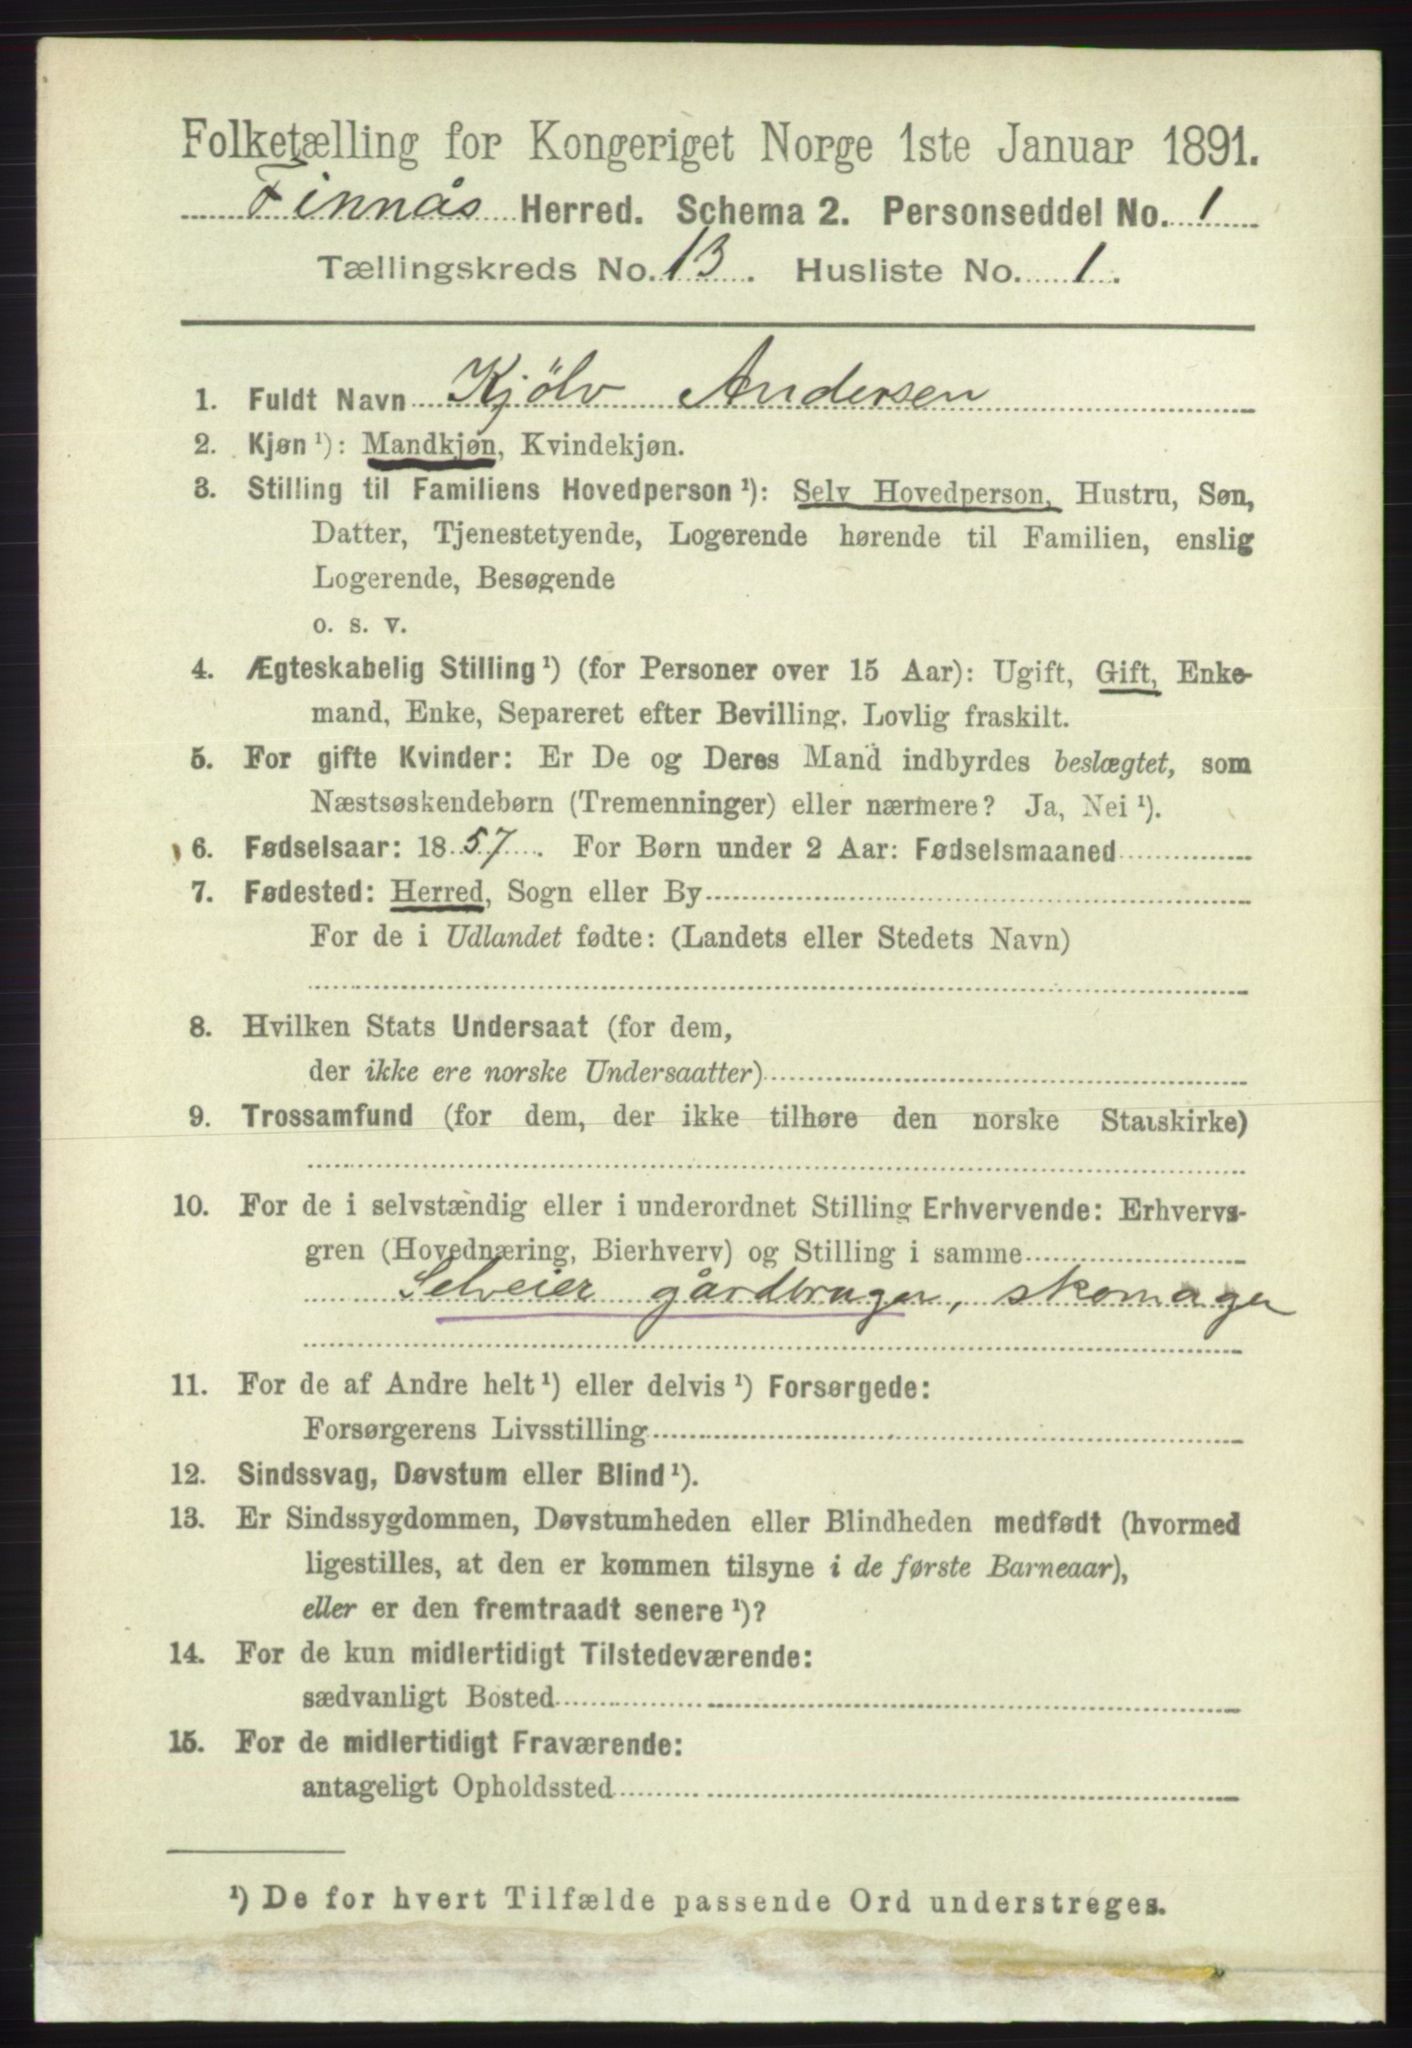 Folketælling for Kongeriget Norge 1ste Januar 1891.
Finnås Herred. Schema 2. Personseddel No. 1
Tællingskreds No. 13. Husliste No. 1.
1. Fuldt Navn Kjölv Andersen
2. Kjøn ¹): Mandkjøn, Kvindekjøn.
3. Stilling til Familiens Hovedperson ¹): Selv Hovedperson, Hustru, Søn,
Datter, Tjenestetyende, Logerende hørende til Familien, enslig
Logerende, Besøgende
o. s. v.
4. Ægteskabelig Stilling ¹) (for Personer over 15 Aar): Ugift, Gift, Enke-
mand, Enke, Separeret efter Bevilling. Lovlig fraskilt.
5. For gifte Kvinder: Er De og Deres Mand indbyrdes beslægtet, som
Næstsøskendebørn (Tremenninger) eller nærmere? Ja, Nei ¹).
6. Fødselsaar: 1857. For Børn under 2 Aar: Fødselsmaaned
7. Fødested: Herred, Sogn eller By
For de i Udlandet fødte: (Landets eller Stedets Navn)
8. Hvilken Stats Undersaat (for dem,
der ikke ere norske Undersaatter)
9. Trossamfund (for dem, der ikke tilhøre den norske Statskirke)
10. For de i selvstændig eller i underordnet Stilling Erhvervende: Erhvervs-
gren (Hovednæring, Bierhverv) og Stilling i samme
Selveier gårdbruger, skomager
11. For de af Andre helt ¹) eller delvis ¹) Forsørgede:
Forsørgerens Livsstilling
12. Sindssvag, Døvstum eller Blind ¹).
13. Er Sindssygdommen, Døvstumheden eller Blindheden medfødt (hvormed
ligestilles, at den er kommen tilsyne i de første Barneaar),
eller er den fremtraadt senere ¹)?
14. For de kun midlertidigt Tilstedeværende:
sædvanligt Bosted
15. For de midlertidigt Fraværende:
antageligt Opholdssted
¹) De for hvert Tilfælde passende Ord understreges.